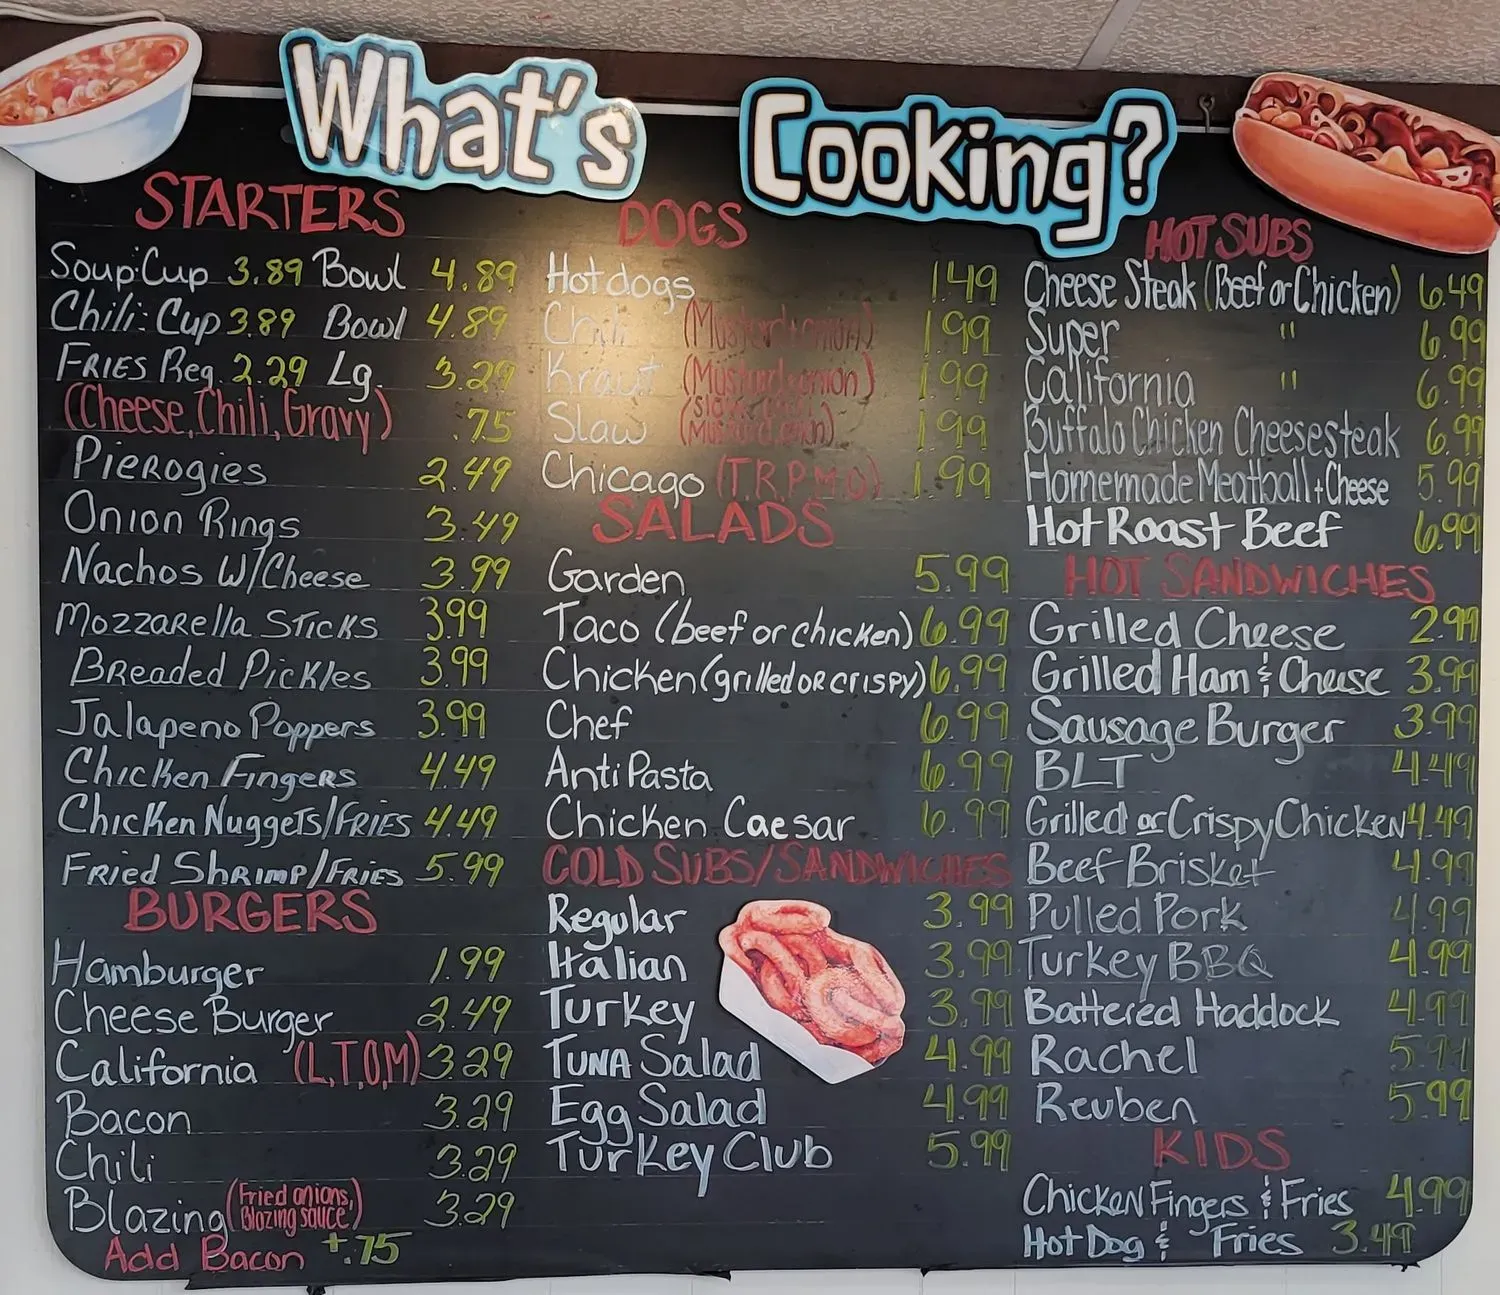 What's Cooking?
STARTERS
Soup: Cup 3.89 Bowl 4.89
Chili: Cup 3.89 Bowl 4.89
FRIES Reg. 2.29 Lg. 3.29
(Cheese, Chili, Gravy) .75
Pierogies 2.49
Onion Rings 3.49
Nachos W/Cheese 3.99
Mozzarella Sticks 3.99
Breaded Pickles 3.99
Jalapeno Poppers 3.99
Chicken Fingers 4.49
Chicken Nuggets/FRIES 4.49
Fried Shrimp/Fries 5.99
BURGERS
Hamburger 1.99
Cheese Burger 2.49
California (L,T,O,M) 3.29
Bacon 3.29
Chili 3.29
Blazing (Fried onions, Blazing sauce) 3.29
Add Bacon +.75
DOGS
Hotdogs 1.49
Chili (Mustard+onion) 1.99
Kraut (Mustard+onion) 1.99
Slaw (Slaw, Mustard, onion) 1.99
Chicago (T.R.P.M.O) 1.99
SALADS
Garden 5.99
Taco (beef or chicken) 6.99
Chicken (grilled OR CRISPY) 6.99
Chef 6.99
AntiPasta 6.99
Chicken Caesar 6.99
COLD SUBS/SANDWICHES
Regular 3.99
Italian 3.99
Turkey 3.99
TUNA Salad 4.99
Egg Salad 4.99
Turkey Club 5.99
HOT SUBS
Cheese Steak (Beef or Chicken) 6.49
Super " 6.99
California " 6.99
Buffalo Chicken Cheesesteak 6.99
Homemade Meatball + Cheese 5.99
Hot Roast Beef 6.99
HOT SANDWICHES
Grilled Cheese 2.99
Grilled Ham & Cheese 3.99
Sausage Burger 3.99
BLT 4.49
Grilled or Crispy Chicken 4.49
Beef Brisket 4.99
Pulled Pork 4.99
Turkey BBQ 4.99
Battered Haddock 4.99
Rachel
Reuben 5.99
KIDS
Chicken Fingers & Fries 4.99
Hot Dog & Fries 3.49